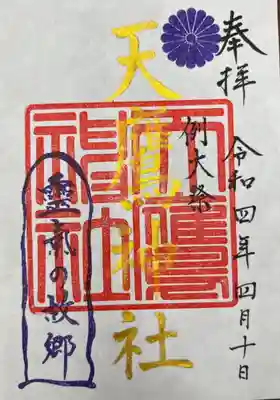 奉拝
令和四年四月十日
例大祭
天鷹神社
天鷹
神社
靈氣の故郷